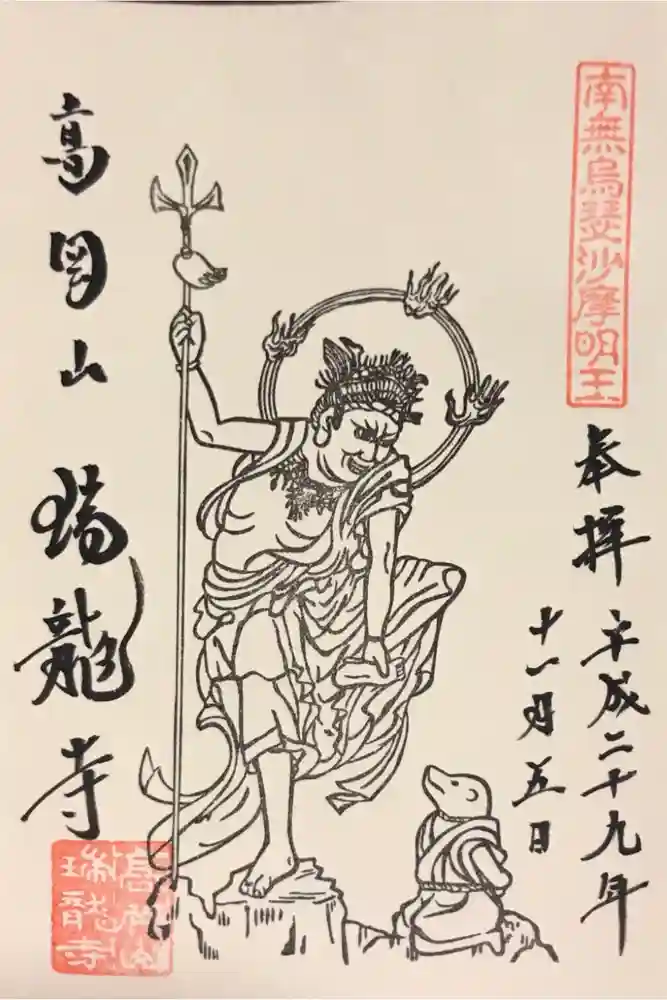 南無烏瑟沙摩明王
奉拝 平成二十九年
十一月五日
高岡山 瑞龍寺
高岡山
瑞龍寺